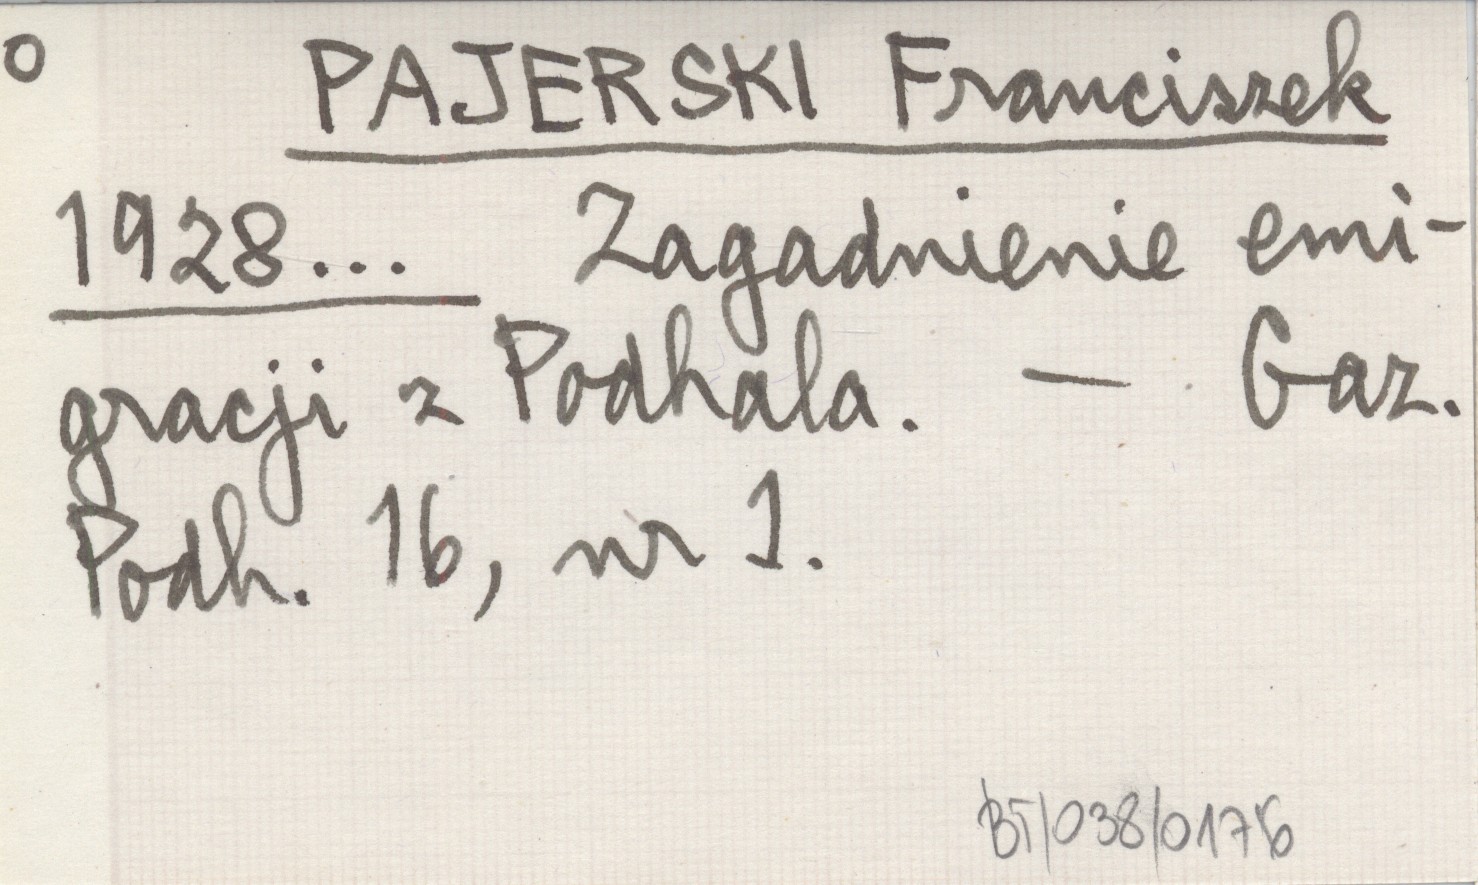 o PAJERSKI Franciszek
1928... Zagadnienie emi-
gracji z Podhala. — Gaz.
Podh. 16, nr 1.
BT/038/0176